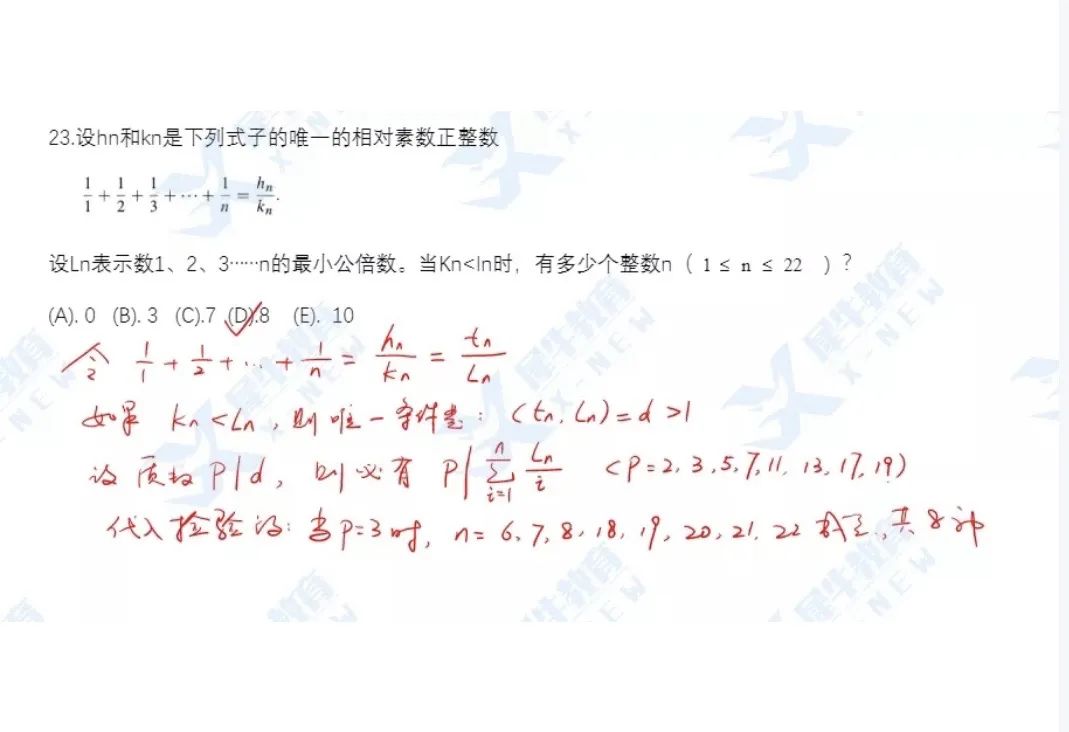 23.设hn和kn是下列式子的唯一的相对素数正整数
1/1 + 1/2 + 1/3 + ··· + 1/n = hₙ/kₙ.
设Ln表示数1、2、3……n的最小公倍数。当Kn<ln时，有多少个整数n（ 1 ≤ n ≤ 22 ）？
(A). 0 (B). 3 (C).7 (D).8 (E). 10
令 1/1 + 1/2 + ... + 1/n = hₙ/kₙ = tₙ/Lₙ
如果 kₙ<Lₙ，则唯一条件是：(tₙ, Lₙ)=d >1
设质数 P|d，则必有 P| Σ(i=1→n) Lₙ/i (P=2,3,5,7,11,13,17,19)
代入检验得：当P=3时，n= 6,7,8,18,19,20,21,22 成立，共8种
犀牛教育
X-NEW